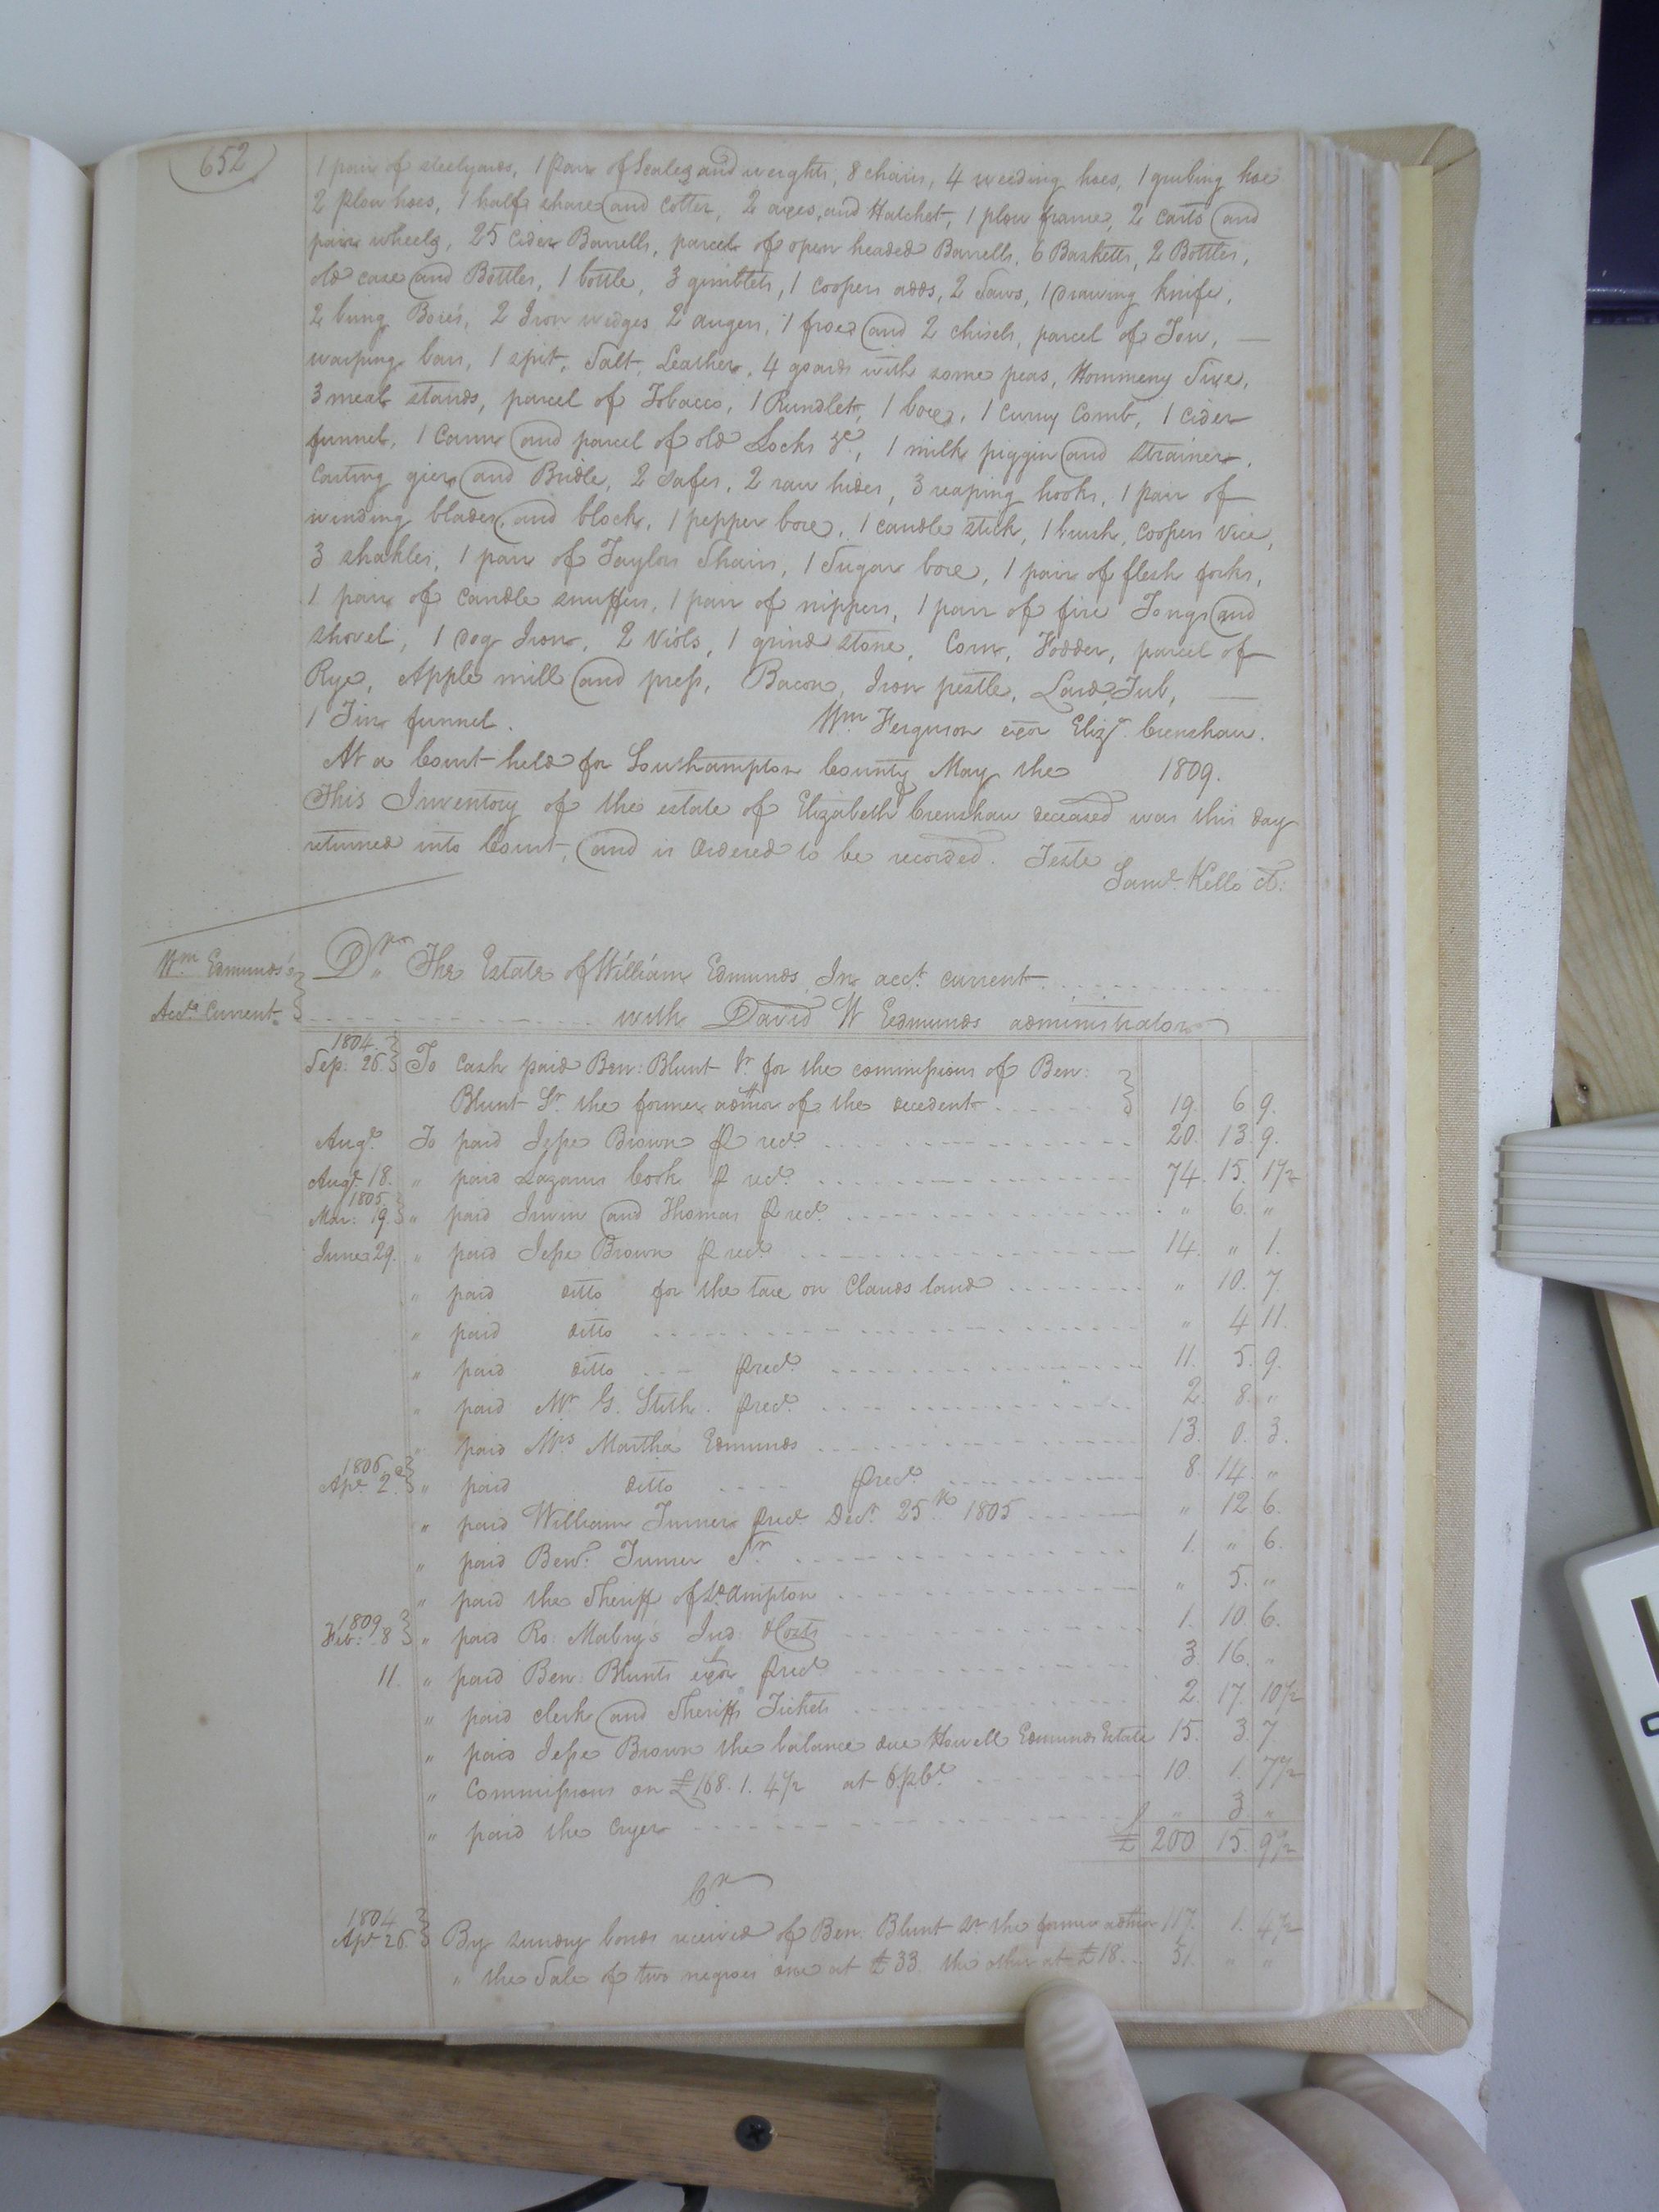 652
1 pair of steelyards, 1 pair of Scales and weights, 8 chairs, 4 weeding hoes, 1 grubing hoe
2 plow hoes, 1 half share and cotter, 2 axes, and Hatchet, 1 plow frame, 2 carts and
pair wheels, 25 Cider Barrells, parcel of open headed Barrells, 6 Basketts, 2 Bottles,
old case and Bottles, 1 bottle, 3 gimblets, 1 coopers adds, 2 Saws, 1 drawing knife,
2 bung Bores, 2 Iron wedges 2 augers, 1 froe and 2 chisels, parcel of Tow,
warping bars, 1 spit, Salt, Leather, 4 goards with some peas, Hommeny Sive,
3 meal stands, parcel of Tobacco, 1 Rundlet, 1 box, 1 curry Comb, 1 cider
funnel, 1 Cann and parcel of old Locks &c, 1 milk piggin and strainer,
Carting gier and Bridle, 2 Safes, 2 raw hides, 3 reaping hooks, 1 pair of
winding blades, and block, 1 pepper box, 1 candle stick, 1 brush, Coopers Vice,
3 shakles, 1 pair of Taylors Shairs, 1 Sugar box, 1 pair of flesh forks,
1 pair of candle snuffers, 1 pair of nippers, 1 pair of fire Tongs and
shovel, 1 dog Iron, 2 Viols, 1 grind stone, Corn, Fodder, parcel of
Rye, Apple mill and press, Bacon, Iron pestle, Lard, Tub,
1 Tin funnel. Wm Ferguson exor Elizh. Crenshaw.
At a Court held for Southampton County May the 1809.
This Inventory of the estate of Elizabeth Crenshaw deceased was this day
returned into Court, and is Ordered to be recorded. Teste
Saml. Kello Ct:
Wm Edmunds's
Acct. Current
Dr. The Estate of William Edmunds In acct. current
with David W Edmunds administrator
1804. Sep. 26. To cash paid Ben: Blunt Jr. for the commissions of Ben:
Blunt Sr. the former admor of the decedent 19. 6 9.
Augt. To paid Jesse Brown ⅌ rect. 20. 13. 9.
Augt. 18. " paid Lazarus Cook ⅌ rect. 74. 15. 1 1/2
1805 Mar: 19. " paid Irwin and Thomas ⅌ rect. " 6. "
June 29. " paid Jesse Brown ⅌ rect. 14. " 1.
" paid ditto for the tax on Clauds land " 10. 7.
" paid ditto " 4 11.
" paid ditto ⅌ rect. 11. 5. 9.
" paid Mr G. Stith. ⅌ rect. 2. 8. "
" paid Mrs Martha Edmunds 13. 0. 3.
1806 Apl. 2d. " paid ditto ⅌ rect. 8. 14. "
" paid William Turner ⅌ rect. Decr. 25th. 1805 " 12. 6.
" paid Benj. Turner Jr. 1. " 6.
" paid the Sheriff of So.ampton " 5. "
1809 Feb: 8 " paid Ro: Mabry's Jud: Costs 1. 10. 6.
11. " paid Ben: Blunts exor ⅌ rect. 3. 16. "
" paid clerk and Sheriffs Tickets 2. 17. 10 1/2
" paid Jesse Brown the balance due Howell Edmunds Estate 15. 3. 7
" Commissions on £168. 1. 4 1/2 at 6 ⅌ Ct. 10 1. 7 1/2
" paid the cryer " 3 "
£ 200 15. 9 1/2
Cr
1804 Apr 26. By sundry bonds received of Ben. Blunt Sr the former admor 117. 1. 4 1/2
" the Sale of two negroes one at £33. the other at £18 51. " "